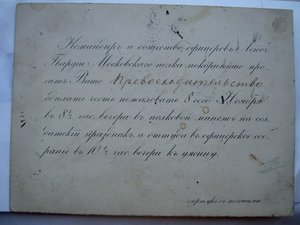 Командиръ и общество офицеровъ Лейбъ
Гвардіи Московскаго полка покорнѣйше про
ситъ Ваше Превосходительство
сдѣлать честь пожаловать 8 сего Ноября
въ 8½ час. вечера въ полковой манежъ на сол
датскій праздникъ, а оттуда въ офицерское соб
раніе въ 10½ час. вечера къ ужину.
сюртукъ съ погонами.